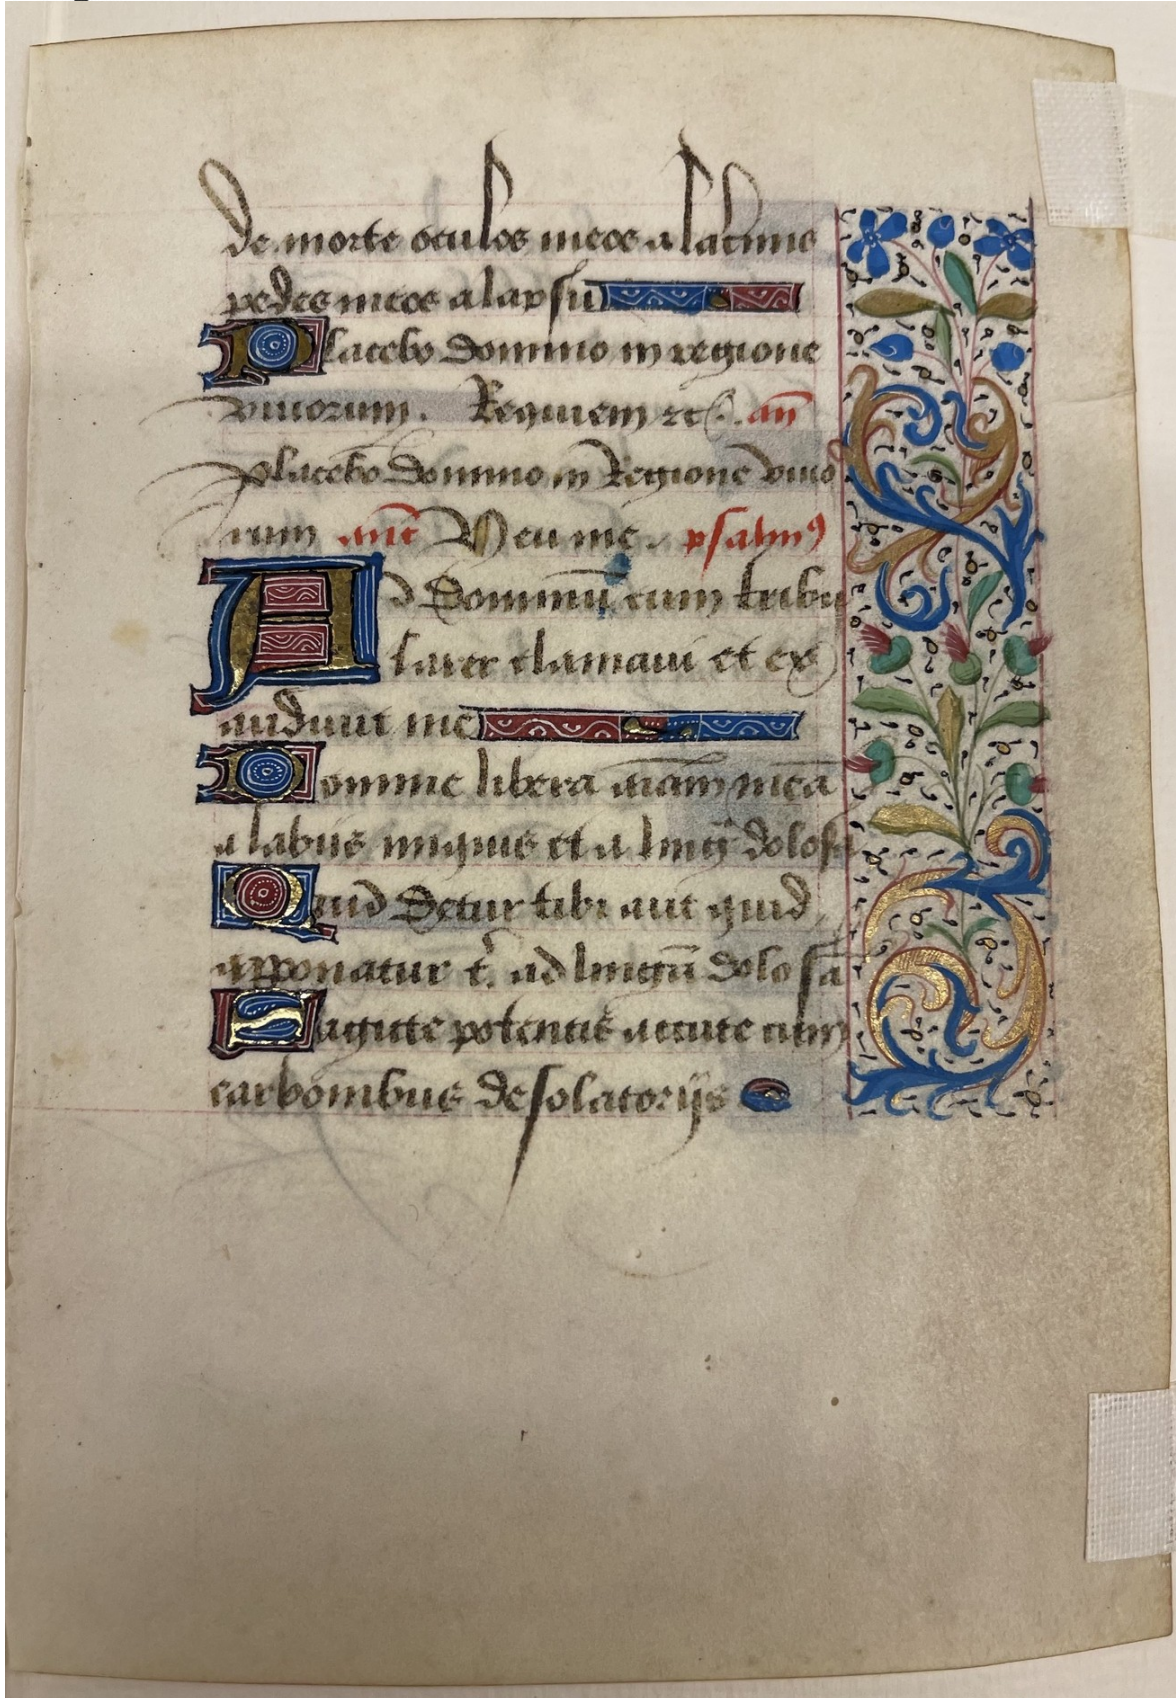 de morte oculos meos a lacrimis
pedes meos a lapsu
Placebo domino in regione
viuorum. Requiem etc. an̄
Placebo domino in Regione viuo
rum ant̄ Heu me. psalmꝰ
Ad dominū cum tribu
larer clamaui et ex
audiuit me
Domine libera aīam meā
a labiis iniquis et a lingᵃ dolosa
Quid detur tibi aut quid
apponatur tⁱ ad linguā dolosā
Sagitte potentis accute cum
carbonibus desolatorijs